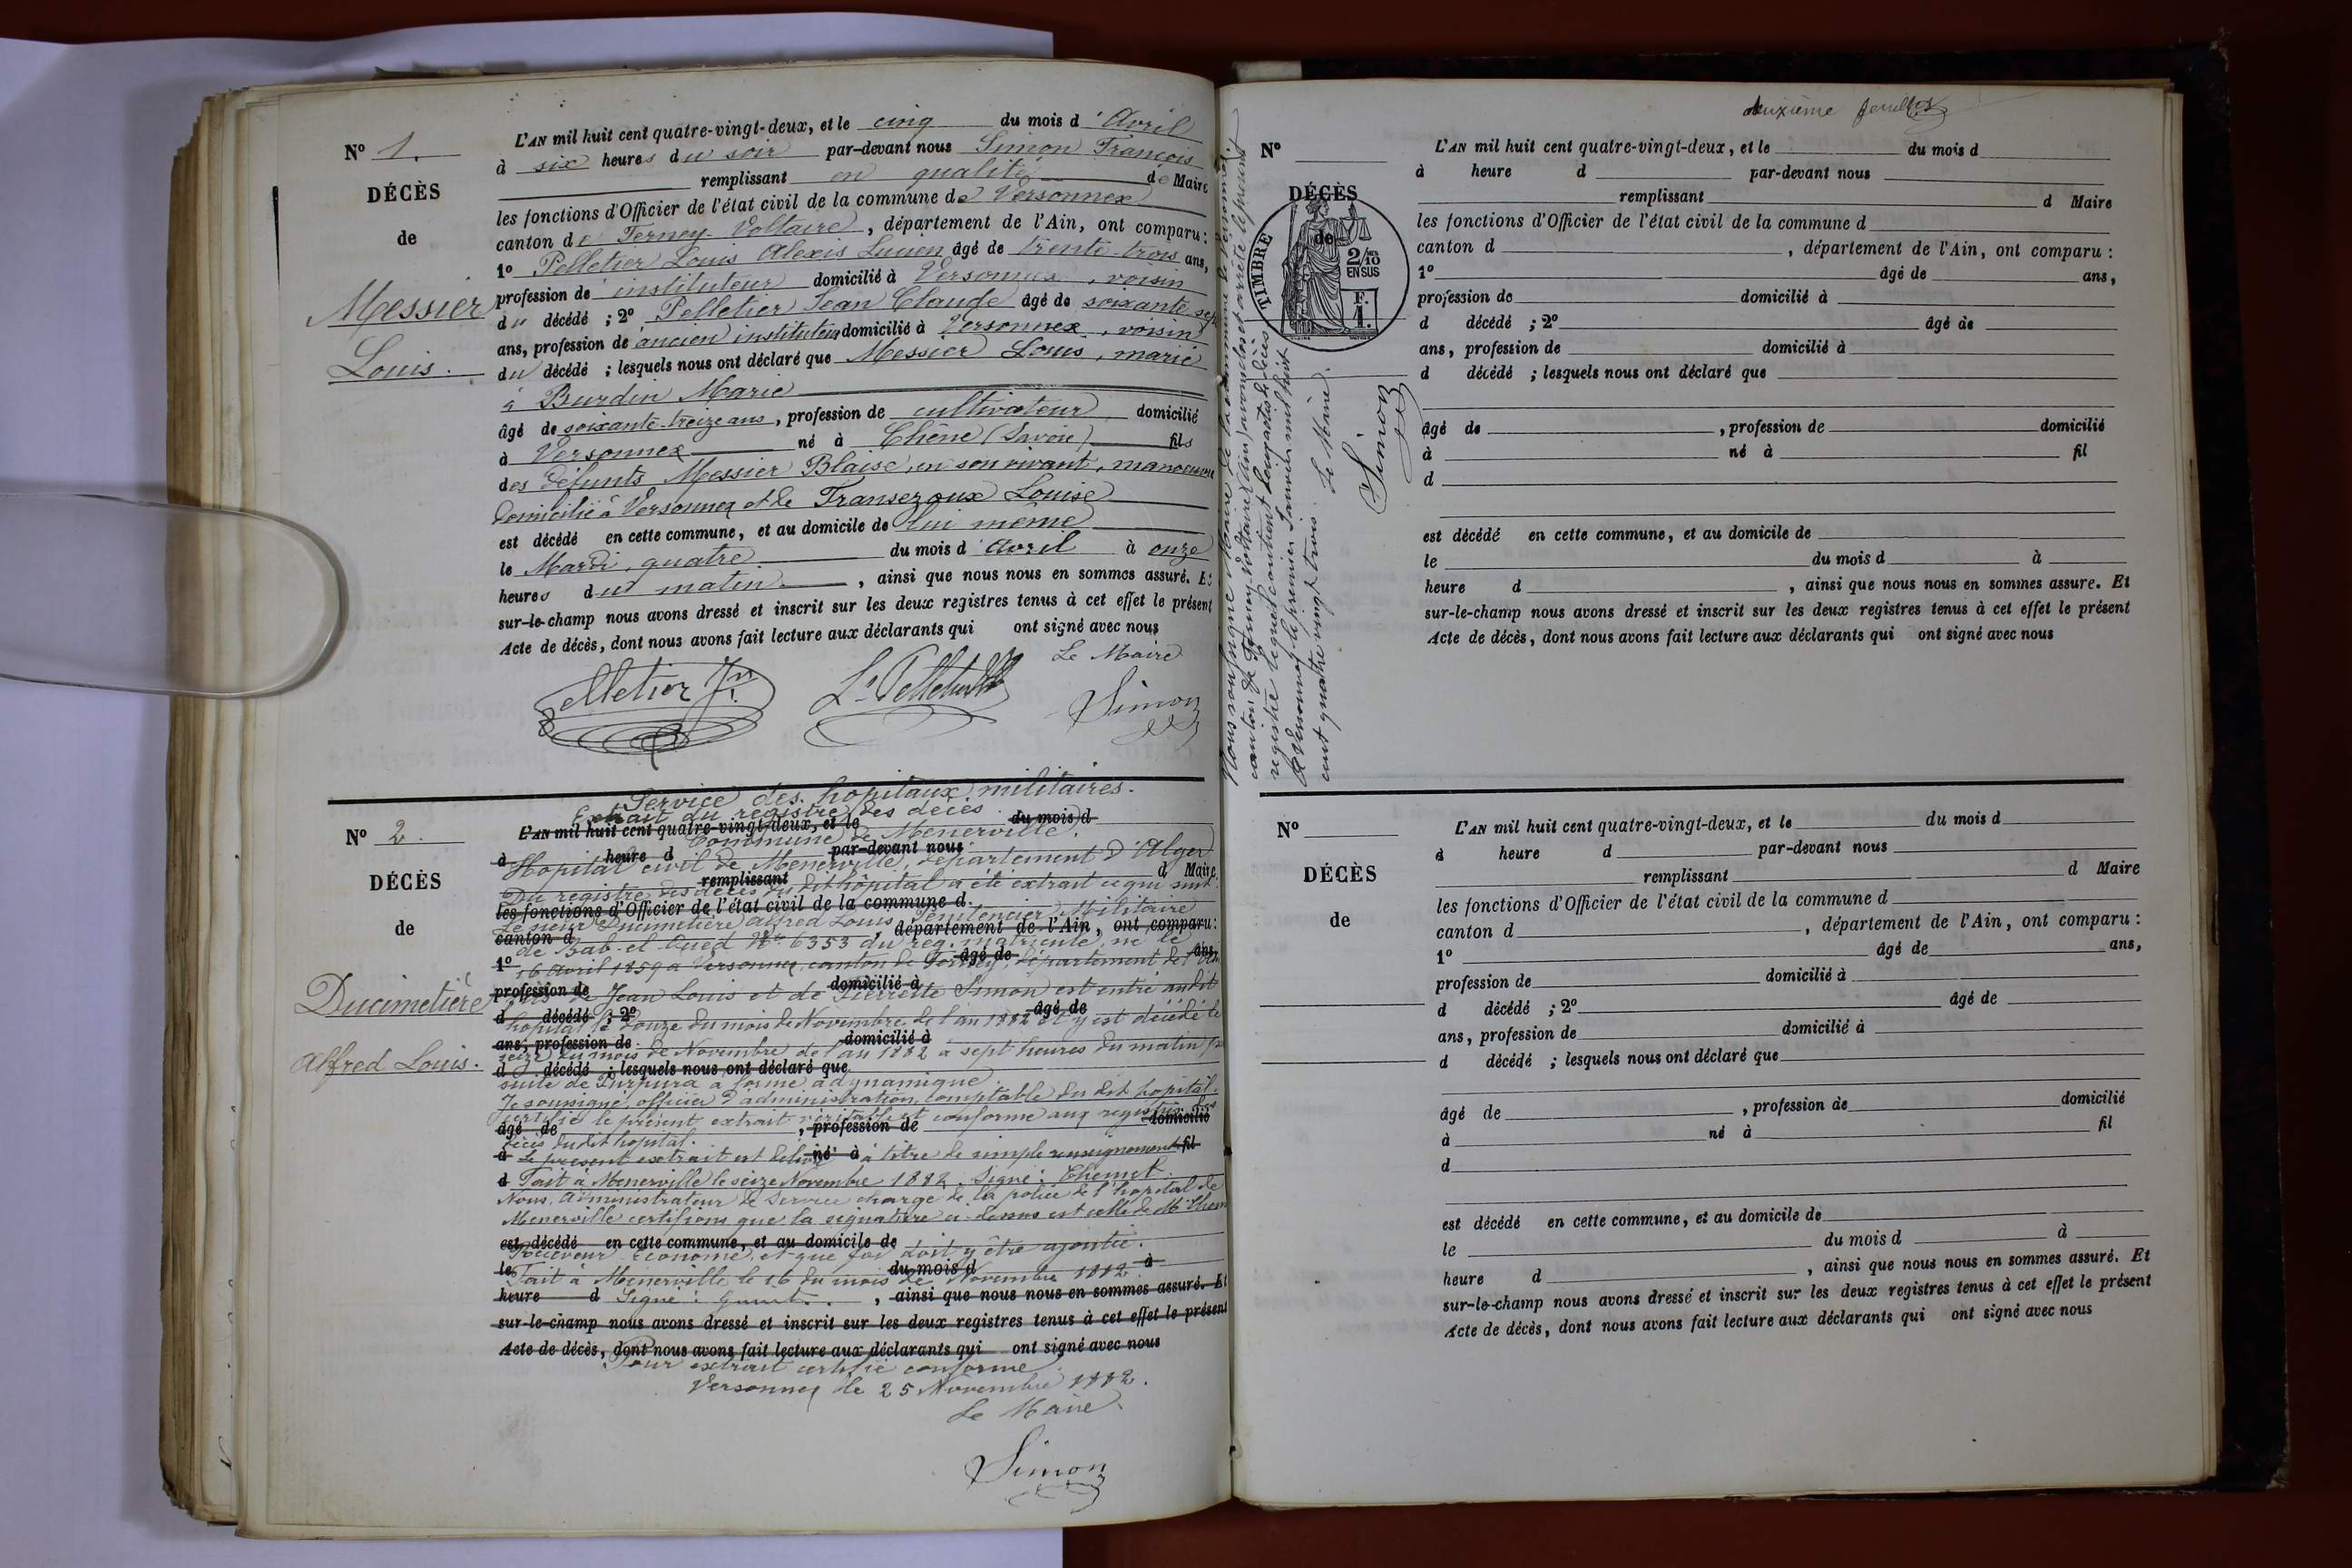 N° 1.
DÉCÈS
de
Messier
Louis.
L'AN mil huit cent quatre-vingt-deux, et le cinq du mois d'Avril
à six heures du soir par-devant nous Simon François
remplissant en qualité de Maire
les fonctions d'Officier de l'état civil de la commune de Versonnex
canton de Ferney Voltaire, département de l'Ain, ont comparu :
1° Pelletier Louis Alexis Lucien âgé de trente-trois ans,
profession de instituteur domicilié à Versonnex, voisin
du décédé ; 2° Pelletier Jean Claude âgé de soixante sept
ans, profession de ancien instituteur domicilié à Versonnex, voisin
du décédé ; lesquels nous ont déclaré que Messier Louis, marié
à Burdin Marie
âgé de soixante-treize ans, profession de cultivateur domicilié
à Versonnex né à Chêne (Savoie) fils
des défunts Messier Blaise, en son vivant, manoeuvre
domicilié à Versonnex et de Transezoux Louise
est décédé en cette commune, et au domicile de lui même
le Mardi, quatre du mois d'avril à onze
heures du matin, ainsi que nous nous en sommes assuré. Et
sur-le-champ nous avons dressé et inscrit sur les deux registres tenus à cet effet le présent
Acte de décès, dont nous avons fait lecture aux déclarants qui ont signé avec nous
Le Maire
Pelletier Jn
Ls Pelletier
Simon
N° 2.
DÉCÈS
de
Ducimetière
Alfred Louis.
Service des hopitaux militaires.
Extrait du registre des décès
L'AN mil huit cent quatre-vingt-deux, et le du mois d
Commune de Menerville.
à heure d par-devant nous
Hopital civil de Menerville, département d'Alger
remplissant d Maire
Du registre des décès du dit hôpital a été extrait ce qui suit
les fonctions d'Officier de l'état civil de la commune d
Le sieur Ducimetière Alfred Louis Pénitencier Militaire
canton d , département de l'Ain, ont comparu :
de Bab-el-Oued N° 6353 du reg. matricule, né le
1° âgé de ans,
16 avril 1859 à Versonnex, canton de Ferney, département de l'Ain
profession de domicilié à
fils de Jean Louis et de Pierrette Simon est entré audit
d décédé ; 2° âgé de
hopital le douze du mois de Novembre de l'an 1882 et y est décédé le
ans, profession de domicilié à
seize du mois de Novembre de l'an 1882 à sept heures du matin par
d décédé ; lesquels nous ont déclaré que
suite de Purpura à forme adynamique.
Je soussigné, officier d'administration, comptable du dit hopital,
certifie le présent extrait véritable et conforme aux registres des
âgé de , profession de domicilié
décès du dit hopital.
à né à fil
Le présent extrait est délivré à titre de simple renseignement
d Fait à Menerville le seize Novembre 1882. Signé : Chemet.
Nous, administrateur de Service chargé de la police de l'hopital de
Menerville certifions que la signature ci-dessus est celle de Mr
est décédé en cette commune, et au domicile de
Receveur Econome, et que foi doit y être ajoutée.
le du mois d à
Fait à Menerville le 16 du mois de Novembre 1882.
heure d Signé : , ainsi que nous nous en sommes assuré. Et
sur-le-champ nous avons dressé et inscrit sur les deux registres tenus à cet effet le présent
Acte de décès, dont nous avons fait lecture aux déclarants qui ont signé avec nous
Pour extrait certifié conforme
Versonnex le 25 Novembre 1882.
Le Maire.
Simon
deuxième feuillet
Nous soussigné Maire de la commune de Versonnex,
canton de Ferney-Voltaire (Ain) avons clos et arrêté le présent
registre lequel contient deux actes de décès
A Versonnex, le premier Janvier mil huit
cent quatre vingt trois. Le Maire.
Simon
N°
DÉCÈS
de
TIMBRE
2/10 EN SUS
F. 1.
L'AN mil huit cent quatre-vingt-deux, et le du mois d
à heure d par-devant nous
remplissant d Maire
les fonctions d'Officier de l'état civil de la commune d
canton d , département de l'Ain, ont comparu :
1° âgé de ans,
profession de domicilié à
d décédé ; 2° âgé de
ans, profession de domicilié à
d décédé ; lesquels nous ont déclaré que
âgé de , profession de domicilié
à né à fil
d
est décédé en cette commune, et au domicile de
le du mois d à
heure d , ainsi que nous nous en sommes assure. Et
sur-le-champ nous avons dressé et inscrit sur les deux registres tenus à cet effet le présent
Acte de décès, dont nous avons fait lecture aux déclarants qui ont signé avec nous
N°
DÉCÈS
de
L'AN mil huit cent quatre-vingt-deux, et le du mois d
à heure d par-devant nous
remplissant d Maire
les fonctions d'Officier de l'état civil de la commune d
canton d , département de l'Ain, ont comparu :
1° âgé de ans,
profession de domicilié à
d décédé ; 2° âgé de
ans, profession de domicilié à
d décédé ; lesquels nous ont déclaré que
âgé de , profession de domicilié
à né à fil
d
est décédé en cette commune, et au domicile de
le du mois d à
heure d , ainsi que nous nous en sommes assuré. Et
sur-le-champ nous avons dressé et inscrit sur les deux registres tenus à cet effet le présent
Acte de décès, dont nous avons fait lecture aux déclarants qui ont signé avec nous